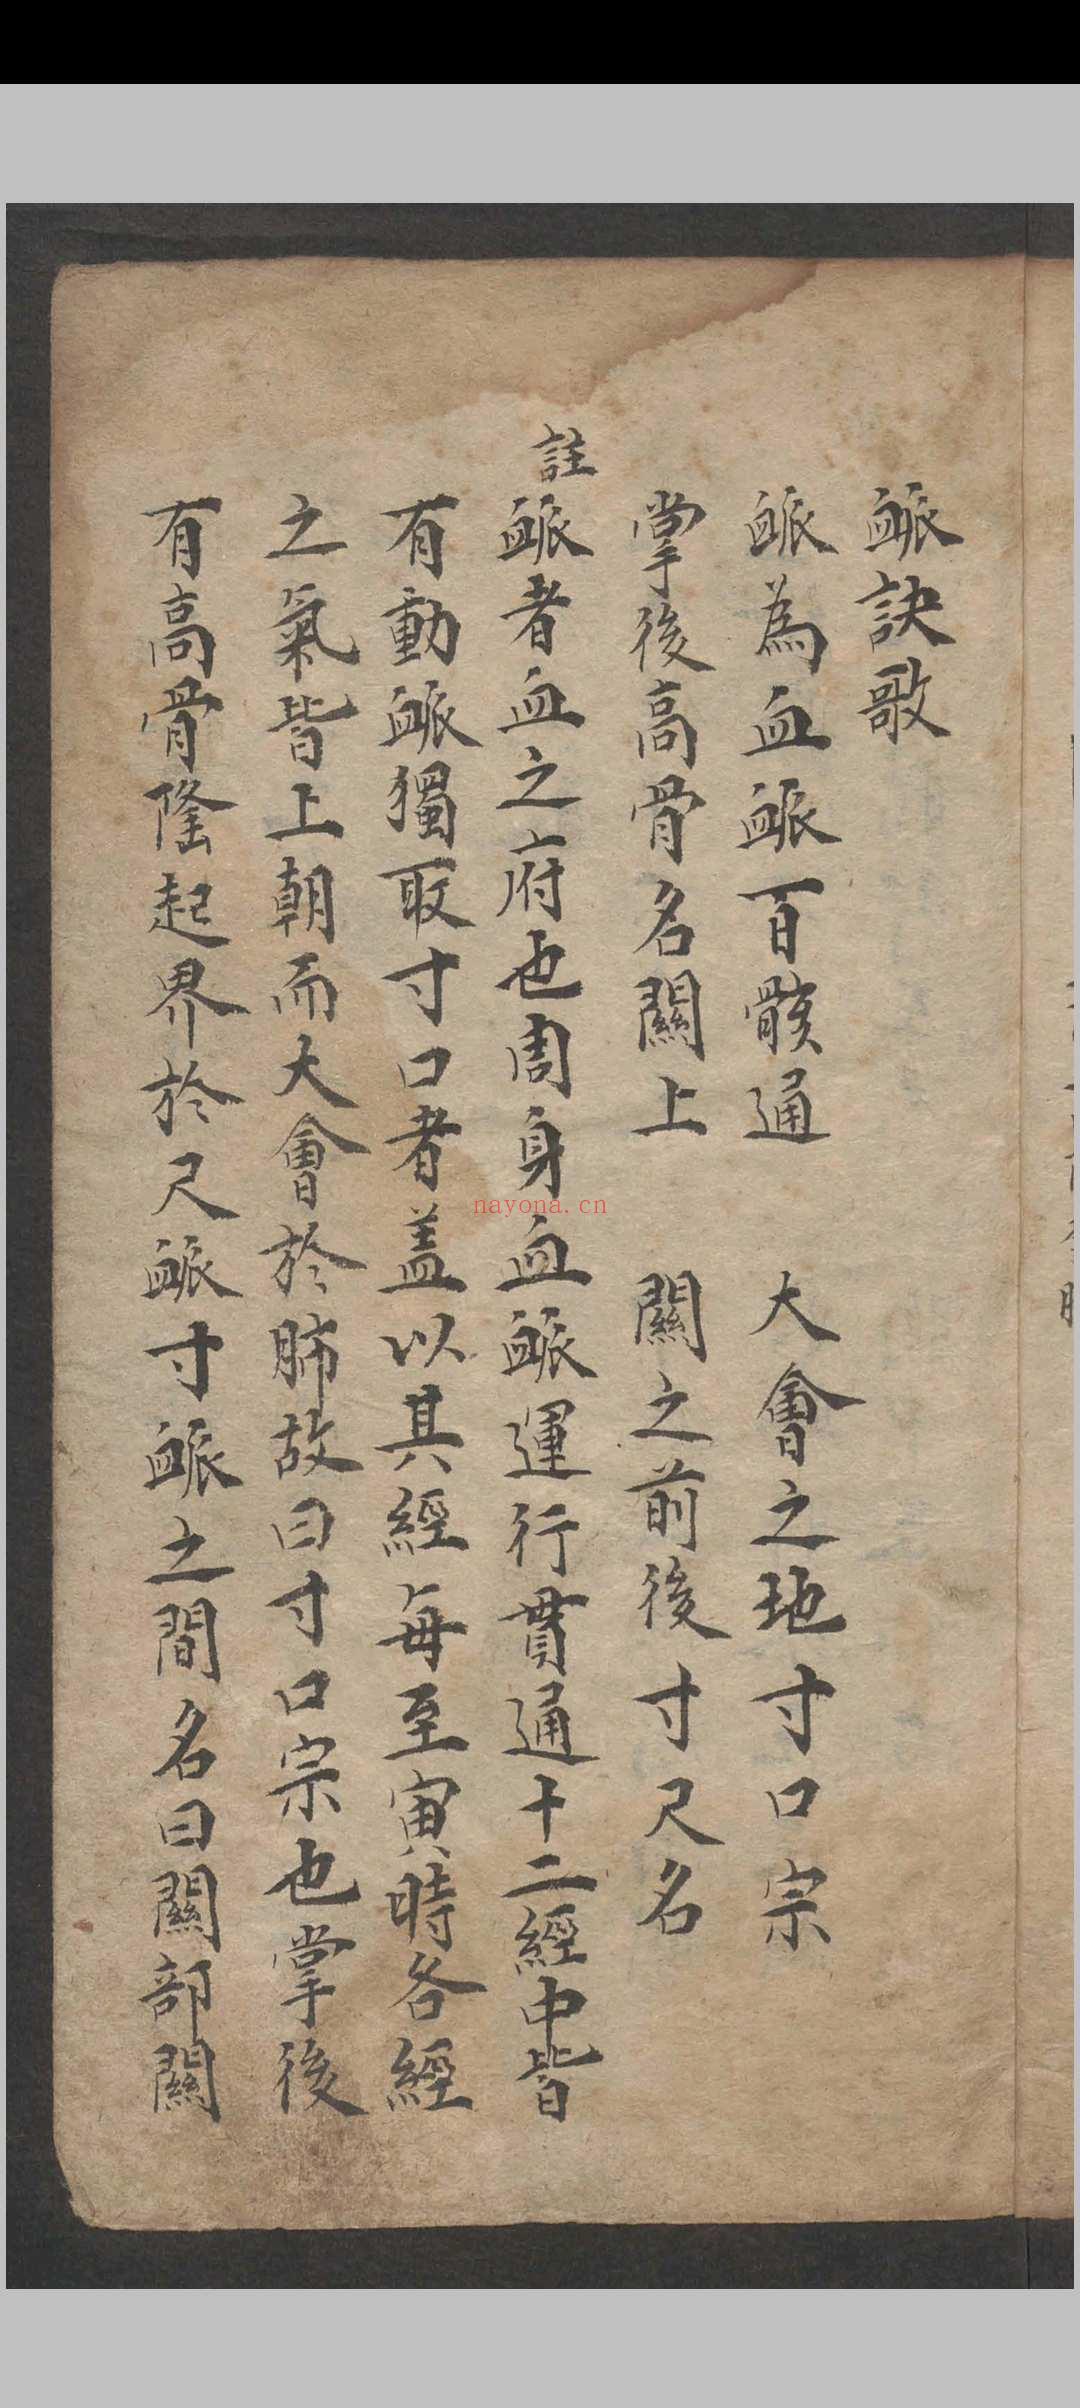 衇訣歌
衇為血衇百骸通　大會之地寸口宗
掌後高骨名關上　關之前後寸尺名
註衇者血之府也周身血衇運行貫通十二經中皆
有動衇獨取寸口者盖以其經每至寅時各經
之氣皆上朝而大會於肺故曰寸口宗也掌後
有高骨隆起界於尺衇寸衇之間名曰關部關
nayona.cn